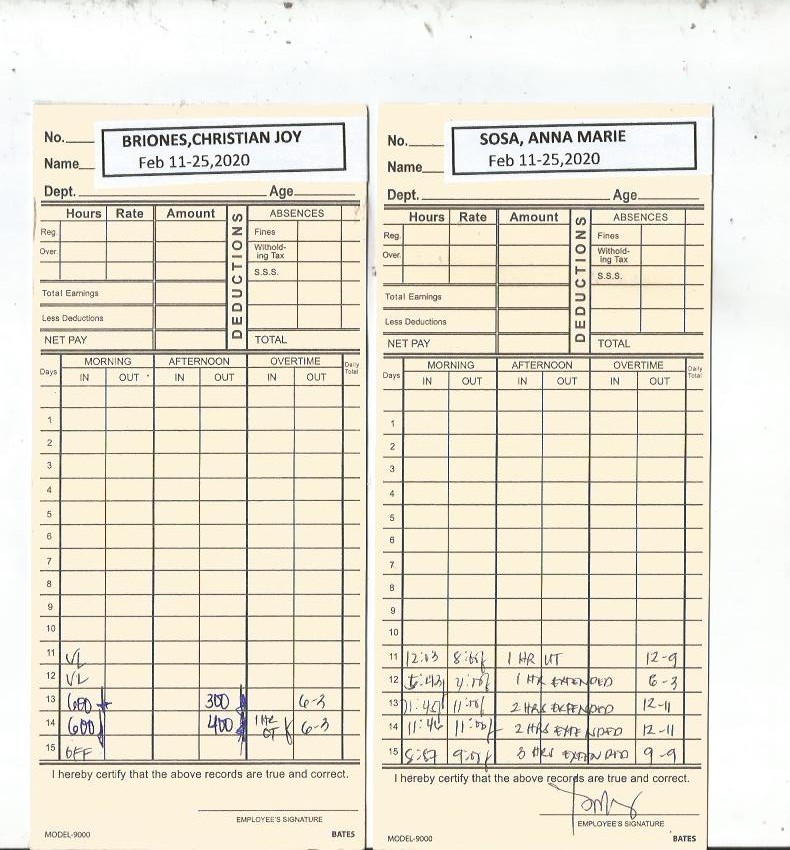 No.
BRIONES,CHRISTIAN JOY
Name
Feb 11-25,2020
Dept. Age
Hours Rate Amount DEDUCTIONS ABSENCES
Reg. Fines
Over. Withold-
ing Tax
S.S.S.
Total Earnings
Less Deductions
NET PAY TOTAL
Days MORNING AFTERNOON OVERTIME Daily Total
IN OUT IN OUT IN OUT
1
2
3
4
5
6
7
8
9
10
11 VL
12 VL
13 600 300 6-3
14 600 400 1HR OT 6-3
15 OFF
I hereby certify that the above records are true and correct.
EMPLOYEE'S SIGNATURE
MODEL-9000 BATES
No.
SOSA, ANNA MARIE
Name
Feb 11-25,2020
Dept. Age
Hours Rate Amount DEDUCTIONS ABSENCES
Reg. Fines
Over. Withold-
ing Tax
S.S.S.
Total Earnings
Less Deductions
NET PAY TOTAL
Days MORNING AFTERNOON OVERTIME Daily Total
IN OUT IN OUT IN OUT
1
2
3
4
5
6
7
8
9
10
11 12:03 1 HR UT 12-9
12 5:43 1 HR EXTENDED 6-3
13 11:45 11:01 2 HRS EXTENDED 12-11
14 11:46 11:00 2 HRS EXTENDED 12-11
15 8:57 3 HRS EXTENDED 9-9
I hereby certify that the above records are true and correct.
EMPLOYEE'S SIGNATURE
MODEL-9000 BATES